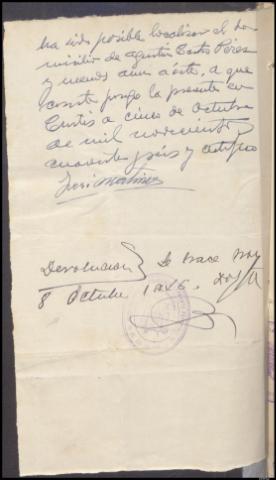 ha sido posible localizar el do-
micilio de Agustin Casto Pérez
y menos aun a éste, a que
conste pongo la presente en
Curtis a cinco de Octubre
de mil novecientos
cuarenta y seis y certifico
José Martinez
Devolucion Se hace hoy
8 Octubre 1946. Doy fe